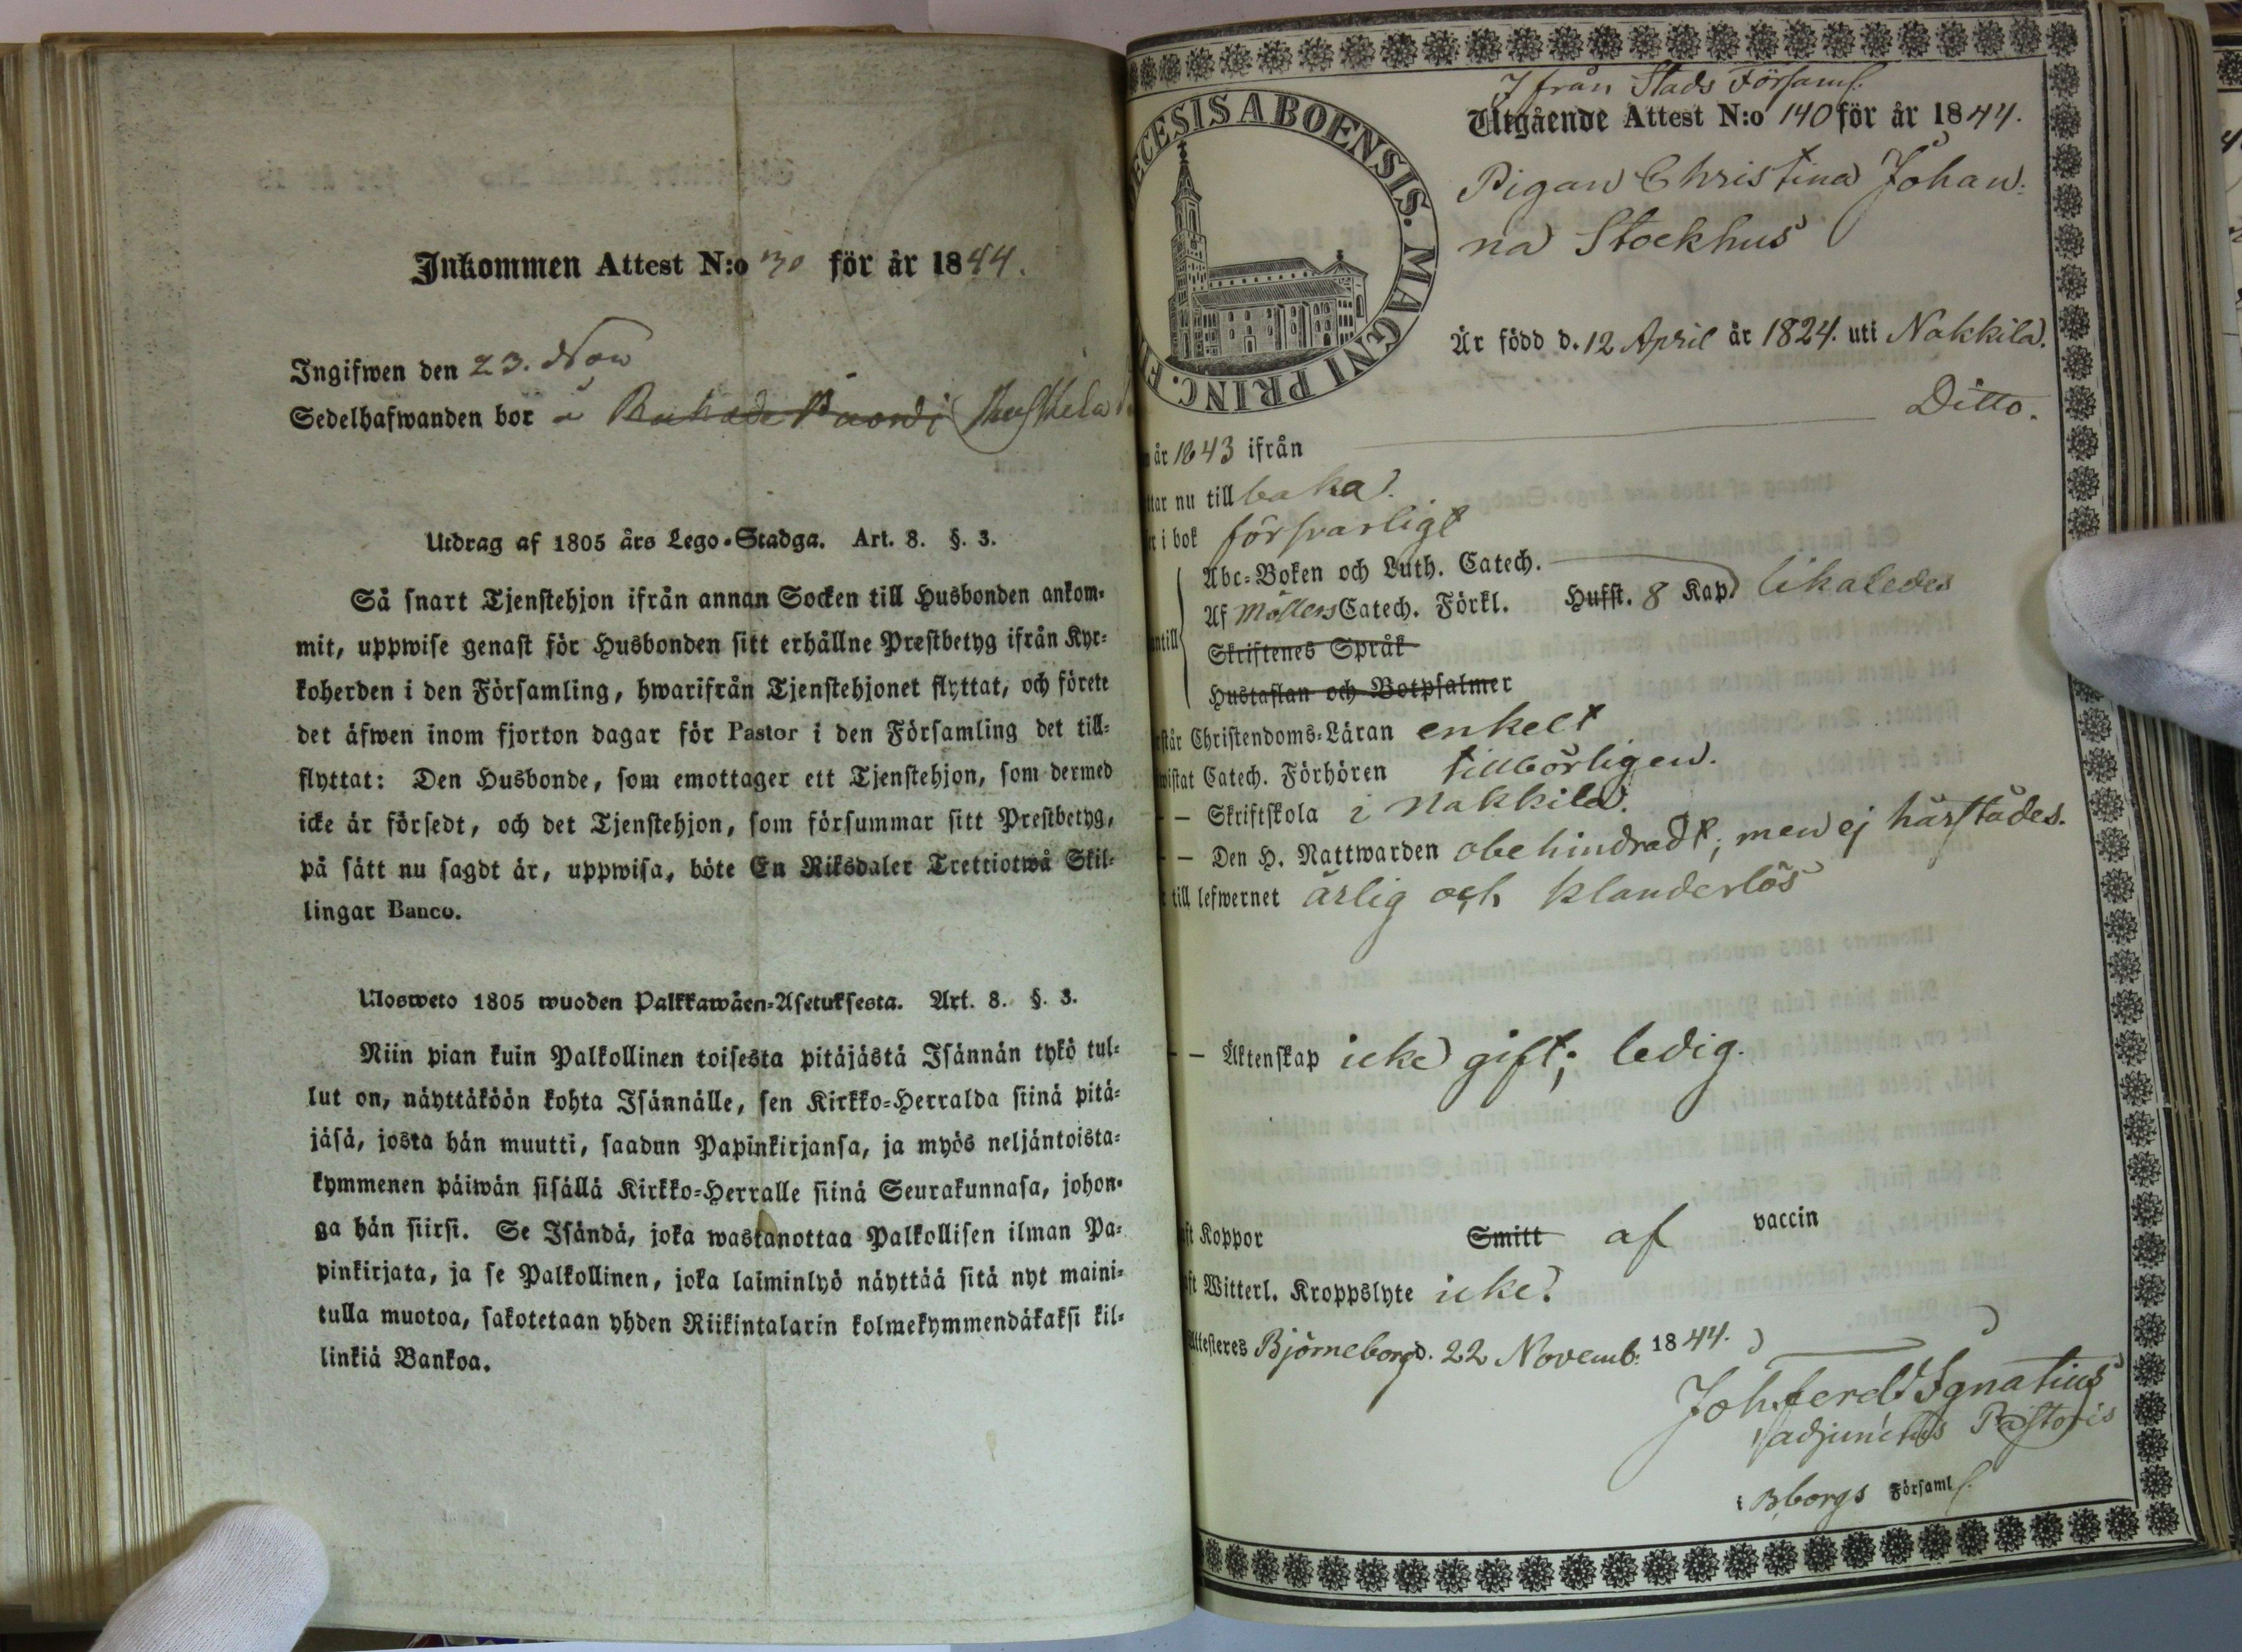 Inkommen Attest N:o 130 för år 1844.
Ingifwen den 23. Nov
Sedelhafwanden bor å
Utdrag af 1805 års Lego-Stadga. Art. 8. §. 3.
Så snart Tjenstehjon ifrån annan Socken till Husbonden ankom-
mit, uppwise genast för Husbonden sitt erhållne Prestbetyg ifrån Kyr-
koherden i den Församling, hwarifrån Tjenstehjonet flyttat, och förete
det äfwen inom fjorton dagar för Pastor i den Församling det till-
flyttat: Den Husbonde, som emottager ett Tjenstehjon, som dermed
icke är försedt, och det Tjenstehjon, som försummar sitt Prestbetyg,
på sätt nu sagdt är, uppwisa, böte En Riksdaler Trettiotwå Skil-
lingar Banco.
Ulosweto 1805 wuoden Palkkawäen-Asetuksesta. Art. 8. §. 3.
Niin pian kuin Palkollinen toisesta pitäjästä Isännän tykö tul-
lut on, näyttäköön kohta Isännälle, sen Kirkko-Herralda siinä pitä-
jäsä, josta hän muutti, saadun Papinkirjansa, ja myös neljäntoista-
kymmenen päiwän sisällä Kirkko-Herralle siinä Seurakunnasa, johon-
ga hän siirsi. Se Isändä, joka wastanottaa Palkollisen ilman Pa-
pinkirjata, ja se Palkollinen, joka laiminlyö näyttää sitä nyt maini-
tulla muotoa, sakotetaan yhden Riikintalarin kolmekymmendäkaksi kil-
linkiä Bankoa.
ECESIS ABOENSIS. MAGNI PRINC. F
Ifrån Stads Församl.
Utgående Attest N:o 140 för år 1844.
Pigan Christina Johan-
na Stockhus
Är född d. 12 April år 1824. uti Nakkila.
år 1843 ifrån Ditto.
ttar nu tillbaka.
r i bok försvarligt
Abc-Boken och Luth. Catech.
Af Möllers Catech. Förkl. Hufst. 8 Kap. likaledes
antill
Skriftenes Språk
Hustaflan och Botpsalmer
står Christendoms-Läran enkelt
wistat Catech. Förhören tillbörligen.
— Skriftskola i Nakkila.
— Den H. Nattwarden obehindradt; men ej härstädes.
till lefwernet ärlig och klanderlös
— Äktenskap icke gift; ledig.
ft Koppor Smitt af vaccin
ft Witterl. Kroppslyte icke.
Attesteres Björneborg d. 22 Novemb. 1844.
Joh. Ferd. Ignatius
adjunctus Pastoris
i Bborgs Församl.